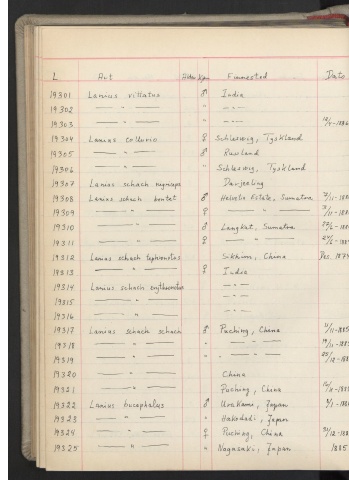 L Art Alder Kjøn Finnested Dato
19301 Lanius vittatus ♂ India
19302 — " — " — " —
19303 — " — " — " — 12/4-188
19304 Lanius collurio ♀ Schleswig, Tyskland
19305 — " — ♂ Russland
19306 — " — " Schleswig, Tyskland
19307 Lanius schach nigriceps Darjeeling
19308 Lanius schach bentet ♂ Helvetia Estate, Sumatra
19309 — " — ♀ — " — " —
19310 — " — ♂ Langkat, Sumatra
19311 — " — ♀ — " — " —
19312 Lanius schach tephronotus Sikkim, China Dec. 187
19313 — " — ♀ India
19314 Lanius schach erythronotus — " —
19315 — " — — " —
19316 — " — — " —
19317 Lanius schach schach ♀ Puching, China 11/11-188
19318 — " — " — " — " — 19/11-188
19319 — " — " — " — 25/12-188
19320 — " — China
19321 — " — Puching, China
19322 Lanius bucephalus ♂ Urakami, Japan
19323 — " — " Hakodadi, Japan
19324 — " — ♀ Puching, China 31/12-188
19325 — " — " Nagasaki, Japan 1885